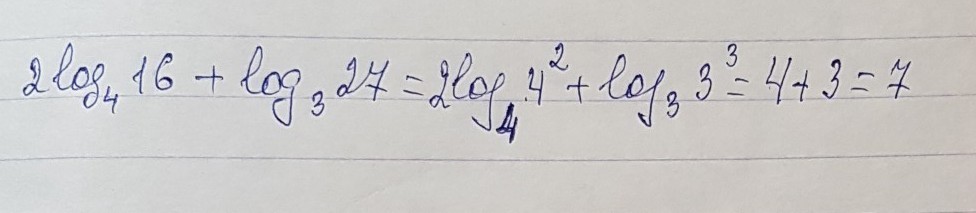 2log₄16 + log₃27 = 2log₄4² + log₃3³ = 4 + 3 = 7